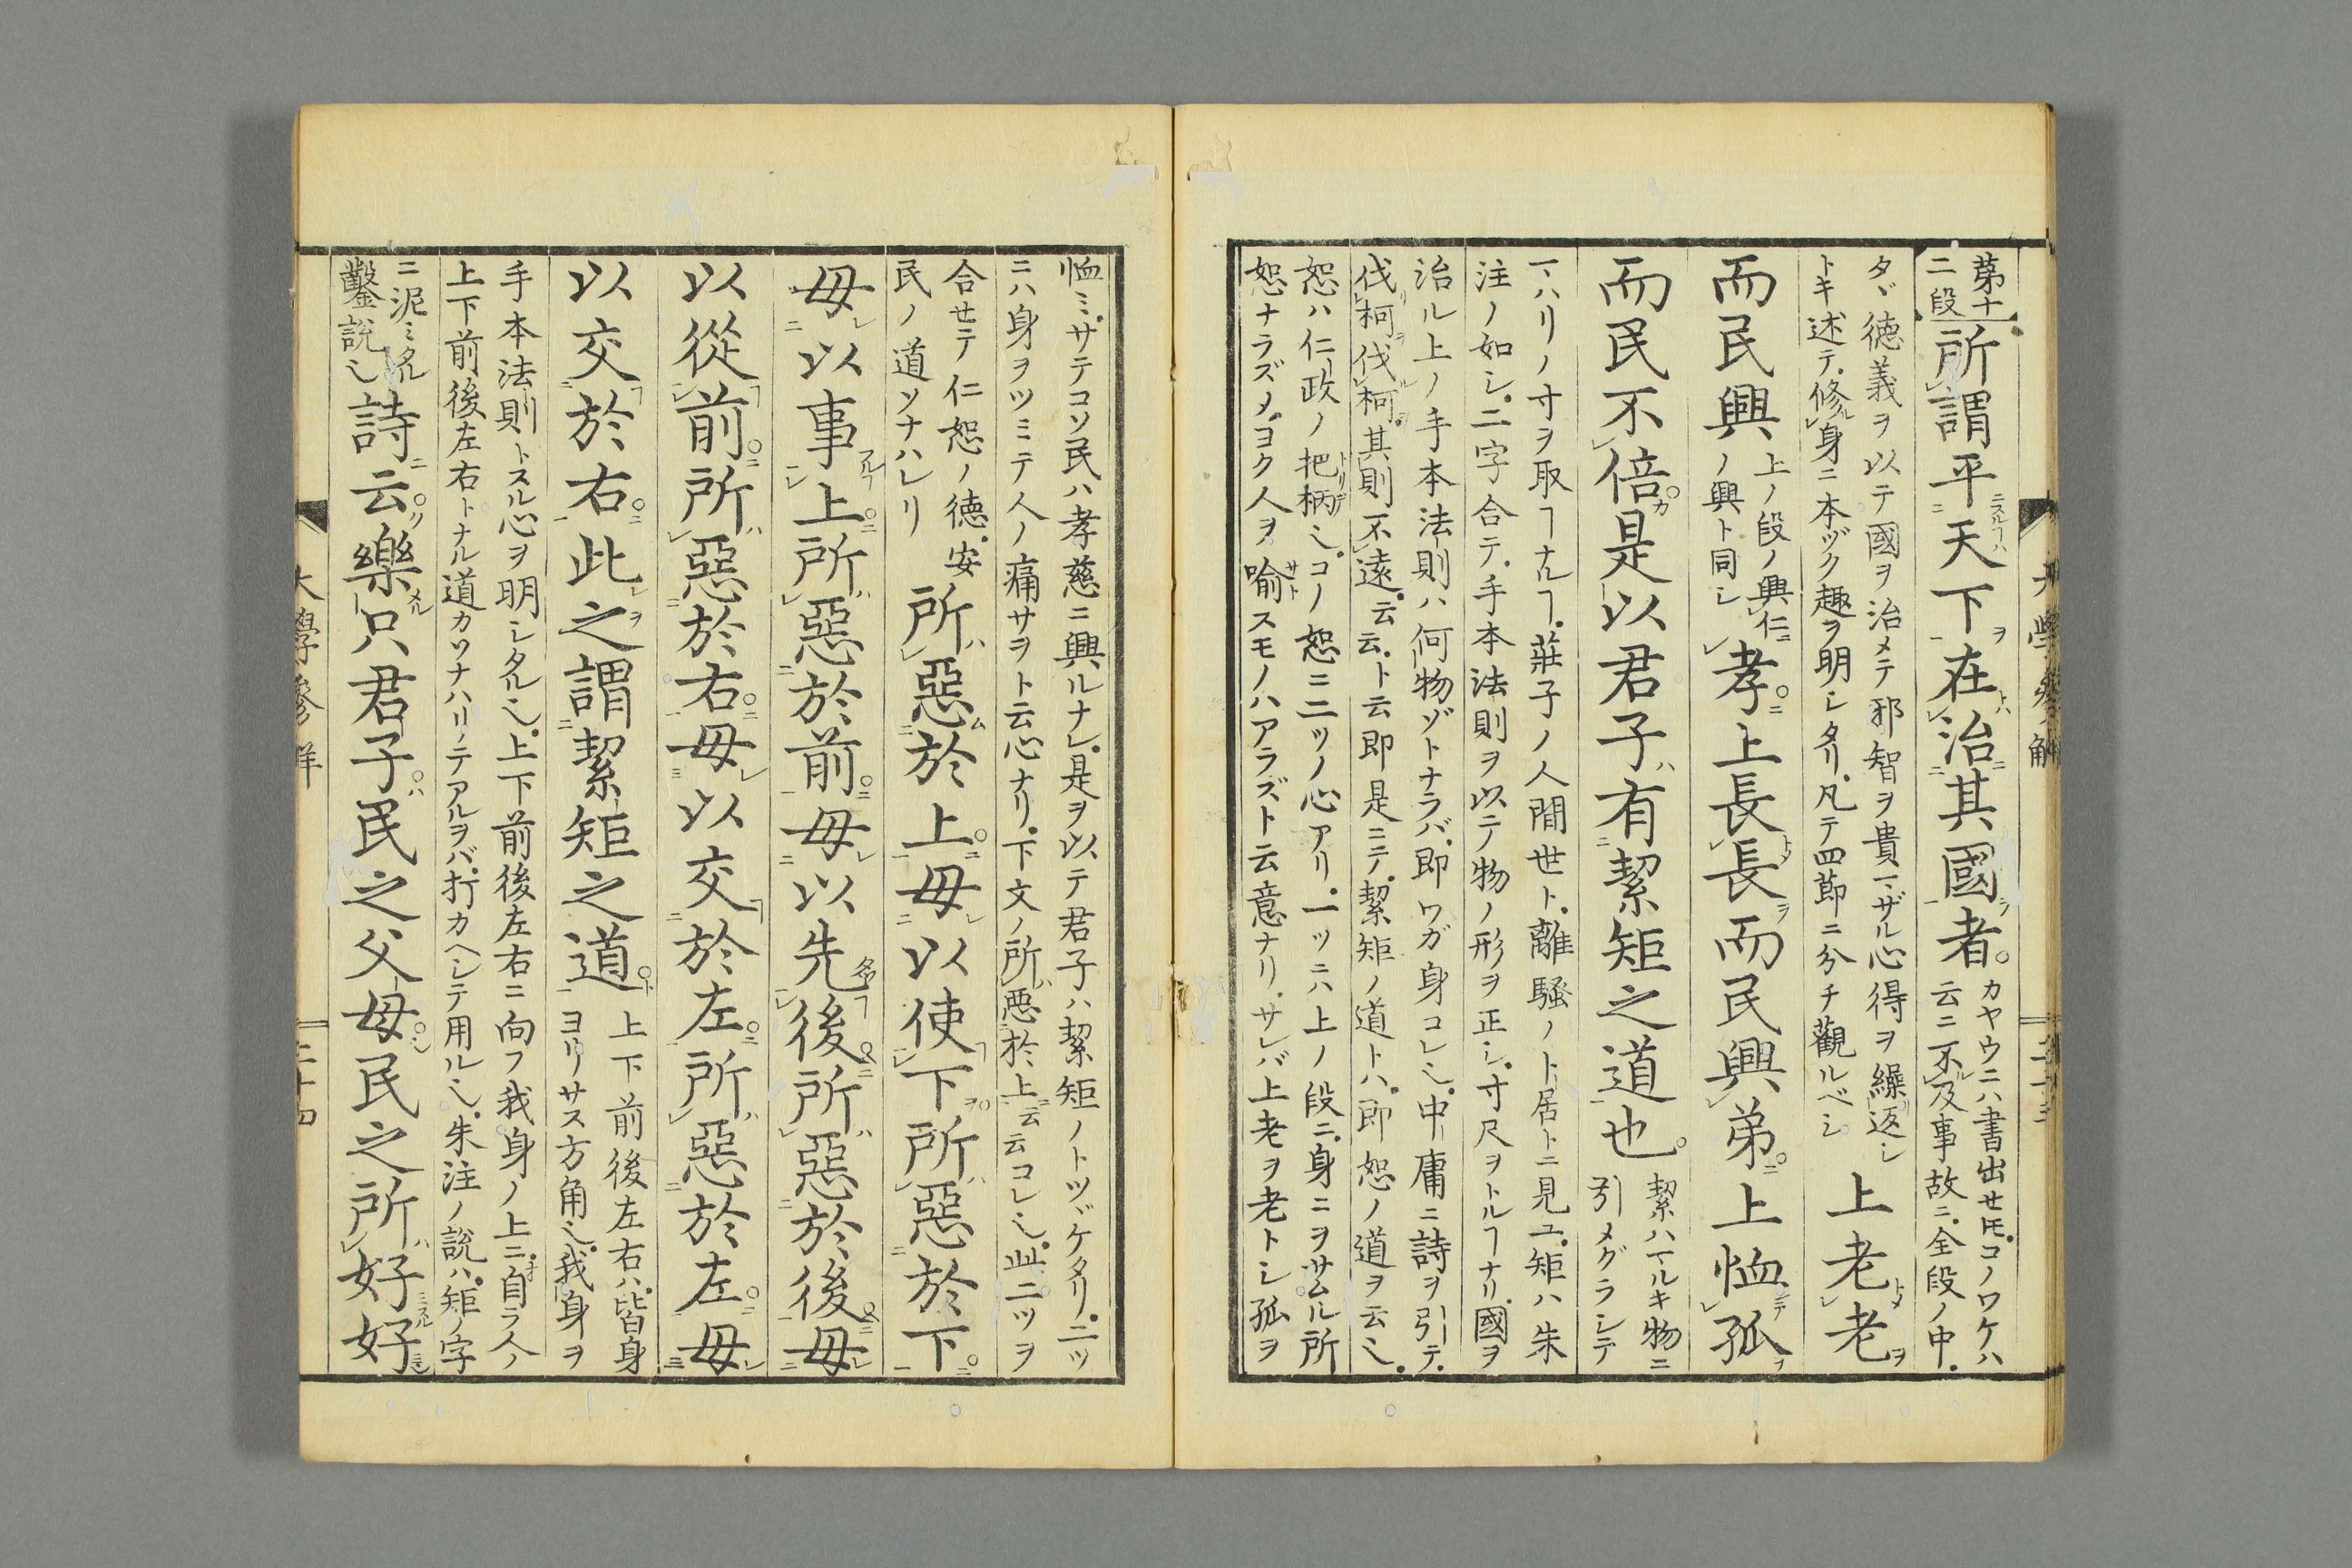 大學參解
二十三
第十
二段
所謂平天下在治其國者。
カヤウニハ書出セ𪜈。コノワケハ
云ニ不及事故ニ、全段ノ中。
タヾ德義ヲ以テ國ヲ治メテ邪智ヲ貴マザル心得ヲ繰返シ
トキ述テ、修身ニ本ヅク趣ヲ明シタリ。凡テ四節ニ分チ觀ルベシ
上老老
而民興
上ノ段ノ興仁
ノ興ト同シ
孝上長長而民興弟上恤孤
而民不倍是以君子有絜矩之道也。
絜ハマルキ物ニ
引メグラシテ
マハリノ寸ヲ取ヿナルヿ。莊子ノ人間世ト、離騷ノト居トニ見ユ。矩ハ朱
注ノ如シ。二字合テ、手本法則ヲ以テ物ノ形ヲ正シ、寸尺ヲトルヿナリ。國ヲ
治ル上ノ手本法則ハ何物ゾトナラバ、即ワガ身コレ也。中庸ニ詩ヲ引テ、
伐柯伐柯其則不遠。云云ト云即是ニテ、絜矩ノ道トハ、即恕ノ道ヲ云也。
恕ハ仁政ノ把柄也。コノ恕ニ二ツノ心アリ。一ツニハ上ノ段ニ、身ニヲサムル所
恕ナラズメ、ヨク人ヲ喩スモノハアラズト云意ナリ。サレバ上老ヲ老トシ孤ヲ
恤ミ、サテコソ民ハ孝慈ニ興ルナレ。是ヲ以テ君子ハ絜矩ノトツヾケタリ。二ツ
ニハ身ヲツミテ人ノ痛サヲト云心ナリ。下文ノ所惡於上云云コレ也。此二ツヲ
合セテ仁恕ノ德。安
民ノ道ソナハレリ
所惡於上毋以使下所惡於下
毋以事上所惡於前毋以先後所惡於後毋
以從前所惡於右毋以交於左所惡於左毋
以交於右此之謂絜矩之道
上下前後左右ハ、皆身
ヨリサス方角也。我身ヲ
手本法則トスル心ヲ明シタル也。上下前後左右ニ向フ我身ノ上ニ、自ラ人ノ
上下前後左右トナル道カソナハリテアルヲバ、打カヘシテ用ル也。朱注ノ說ハ、矩ノ字
ニ泥ミタル
鑿說也
詩云樂只君子民之父母民之所好好
大學參解
二十四